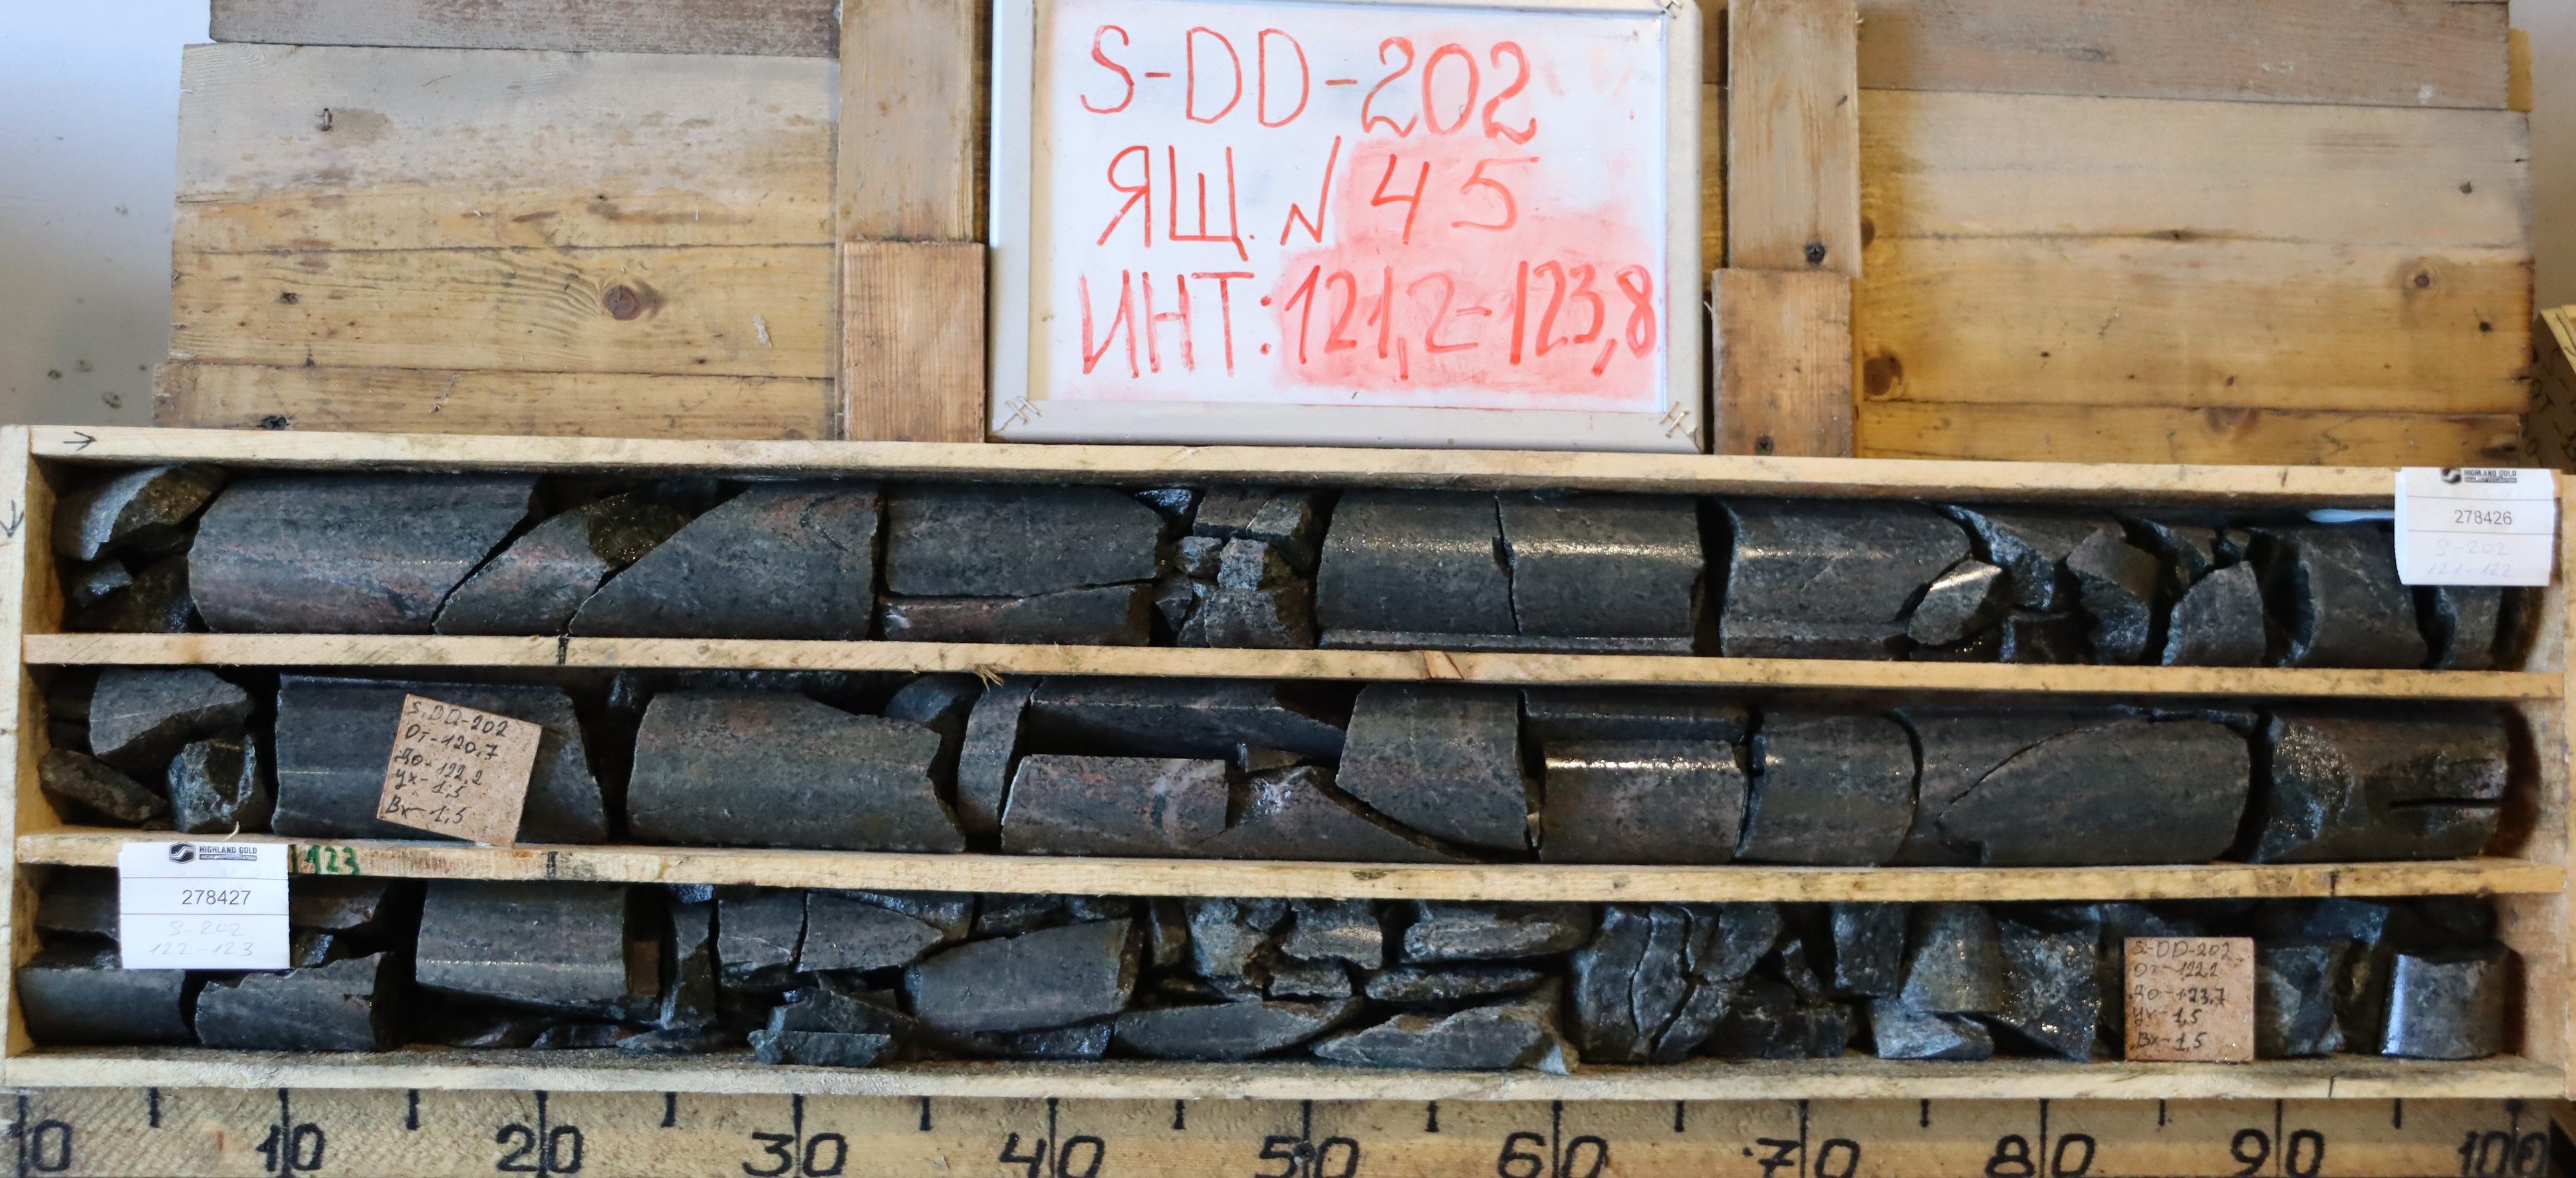 S-DD-202
ЯЩ. N 45
ИНТ: 121,2-123,8
HIGHLAND GOLD
278426
S-202
121-122
S-DD-202
От-120,7
До-122,2
Ух-1,5
Вх-1,5
HIGHLAND GOLD
278427
S-202
122-123
123
S-DD-202
От-122,2
До-123,7
Ух-1,5
Вх-1,5
0 10 20 30 40 50 60 70 80 90 100